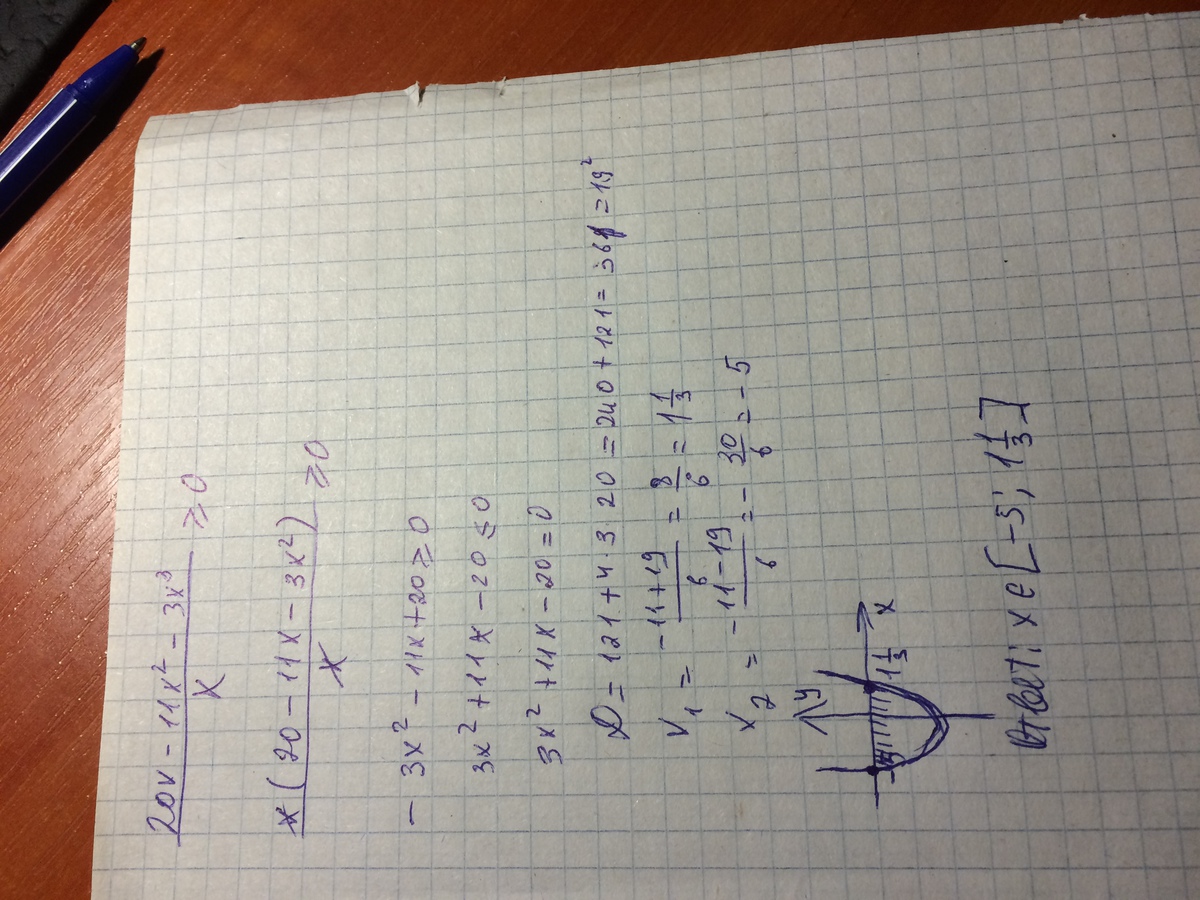 20x - 11x² - 3x³ / x ⩾ 0
x(20 - 11x - 3x²) / x ⩾ 0
- 3x² - 11x + 20 ⩾ 0
3x² + 11x - 20 ⩽ 0
3x² + 11x - 20 = 0
D = 121 + 4 · 3 · 20 = 240 + 121 = 361 = 19²
x₁ = -11 + 19 / 6 = 8/6 = 1 1/3
x₂ = -11 - 19 / 6 = - 30/6 = - 5
y
-5 1 1/3 x
Ответ: x ∈ [-5; 1 1/3]